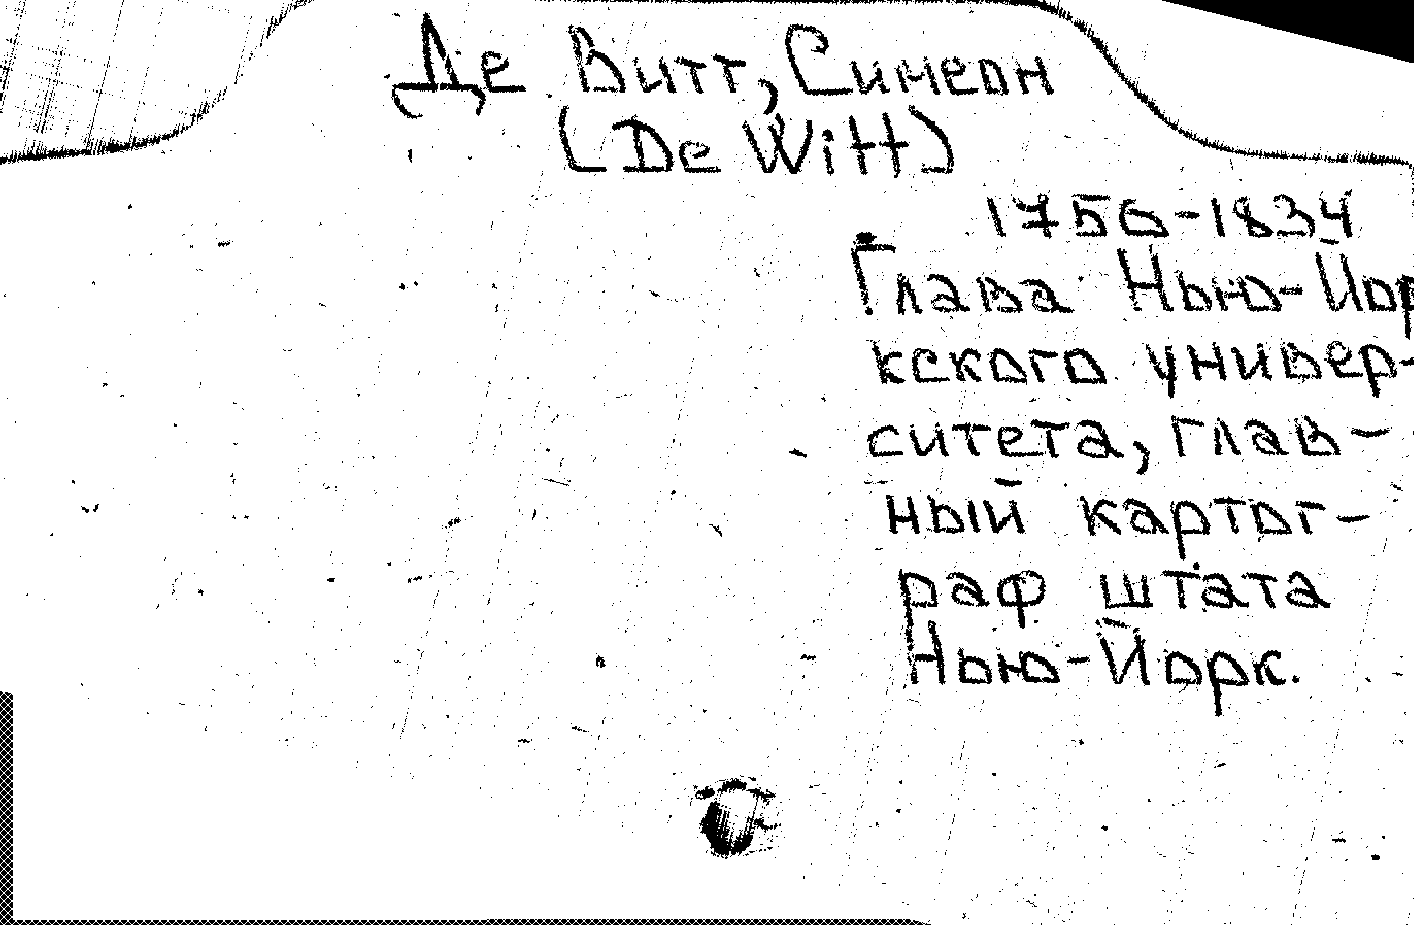 Де Витт, Симеон
(De Witt)
1756-1834
Глава Нью-Йор
кского универ-
ситета, глав-
ный картог-
раф штата
Нью-Йорк.